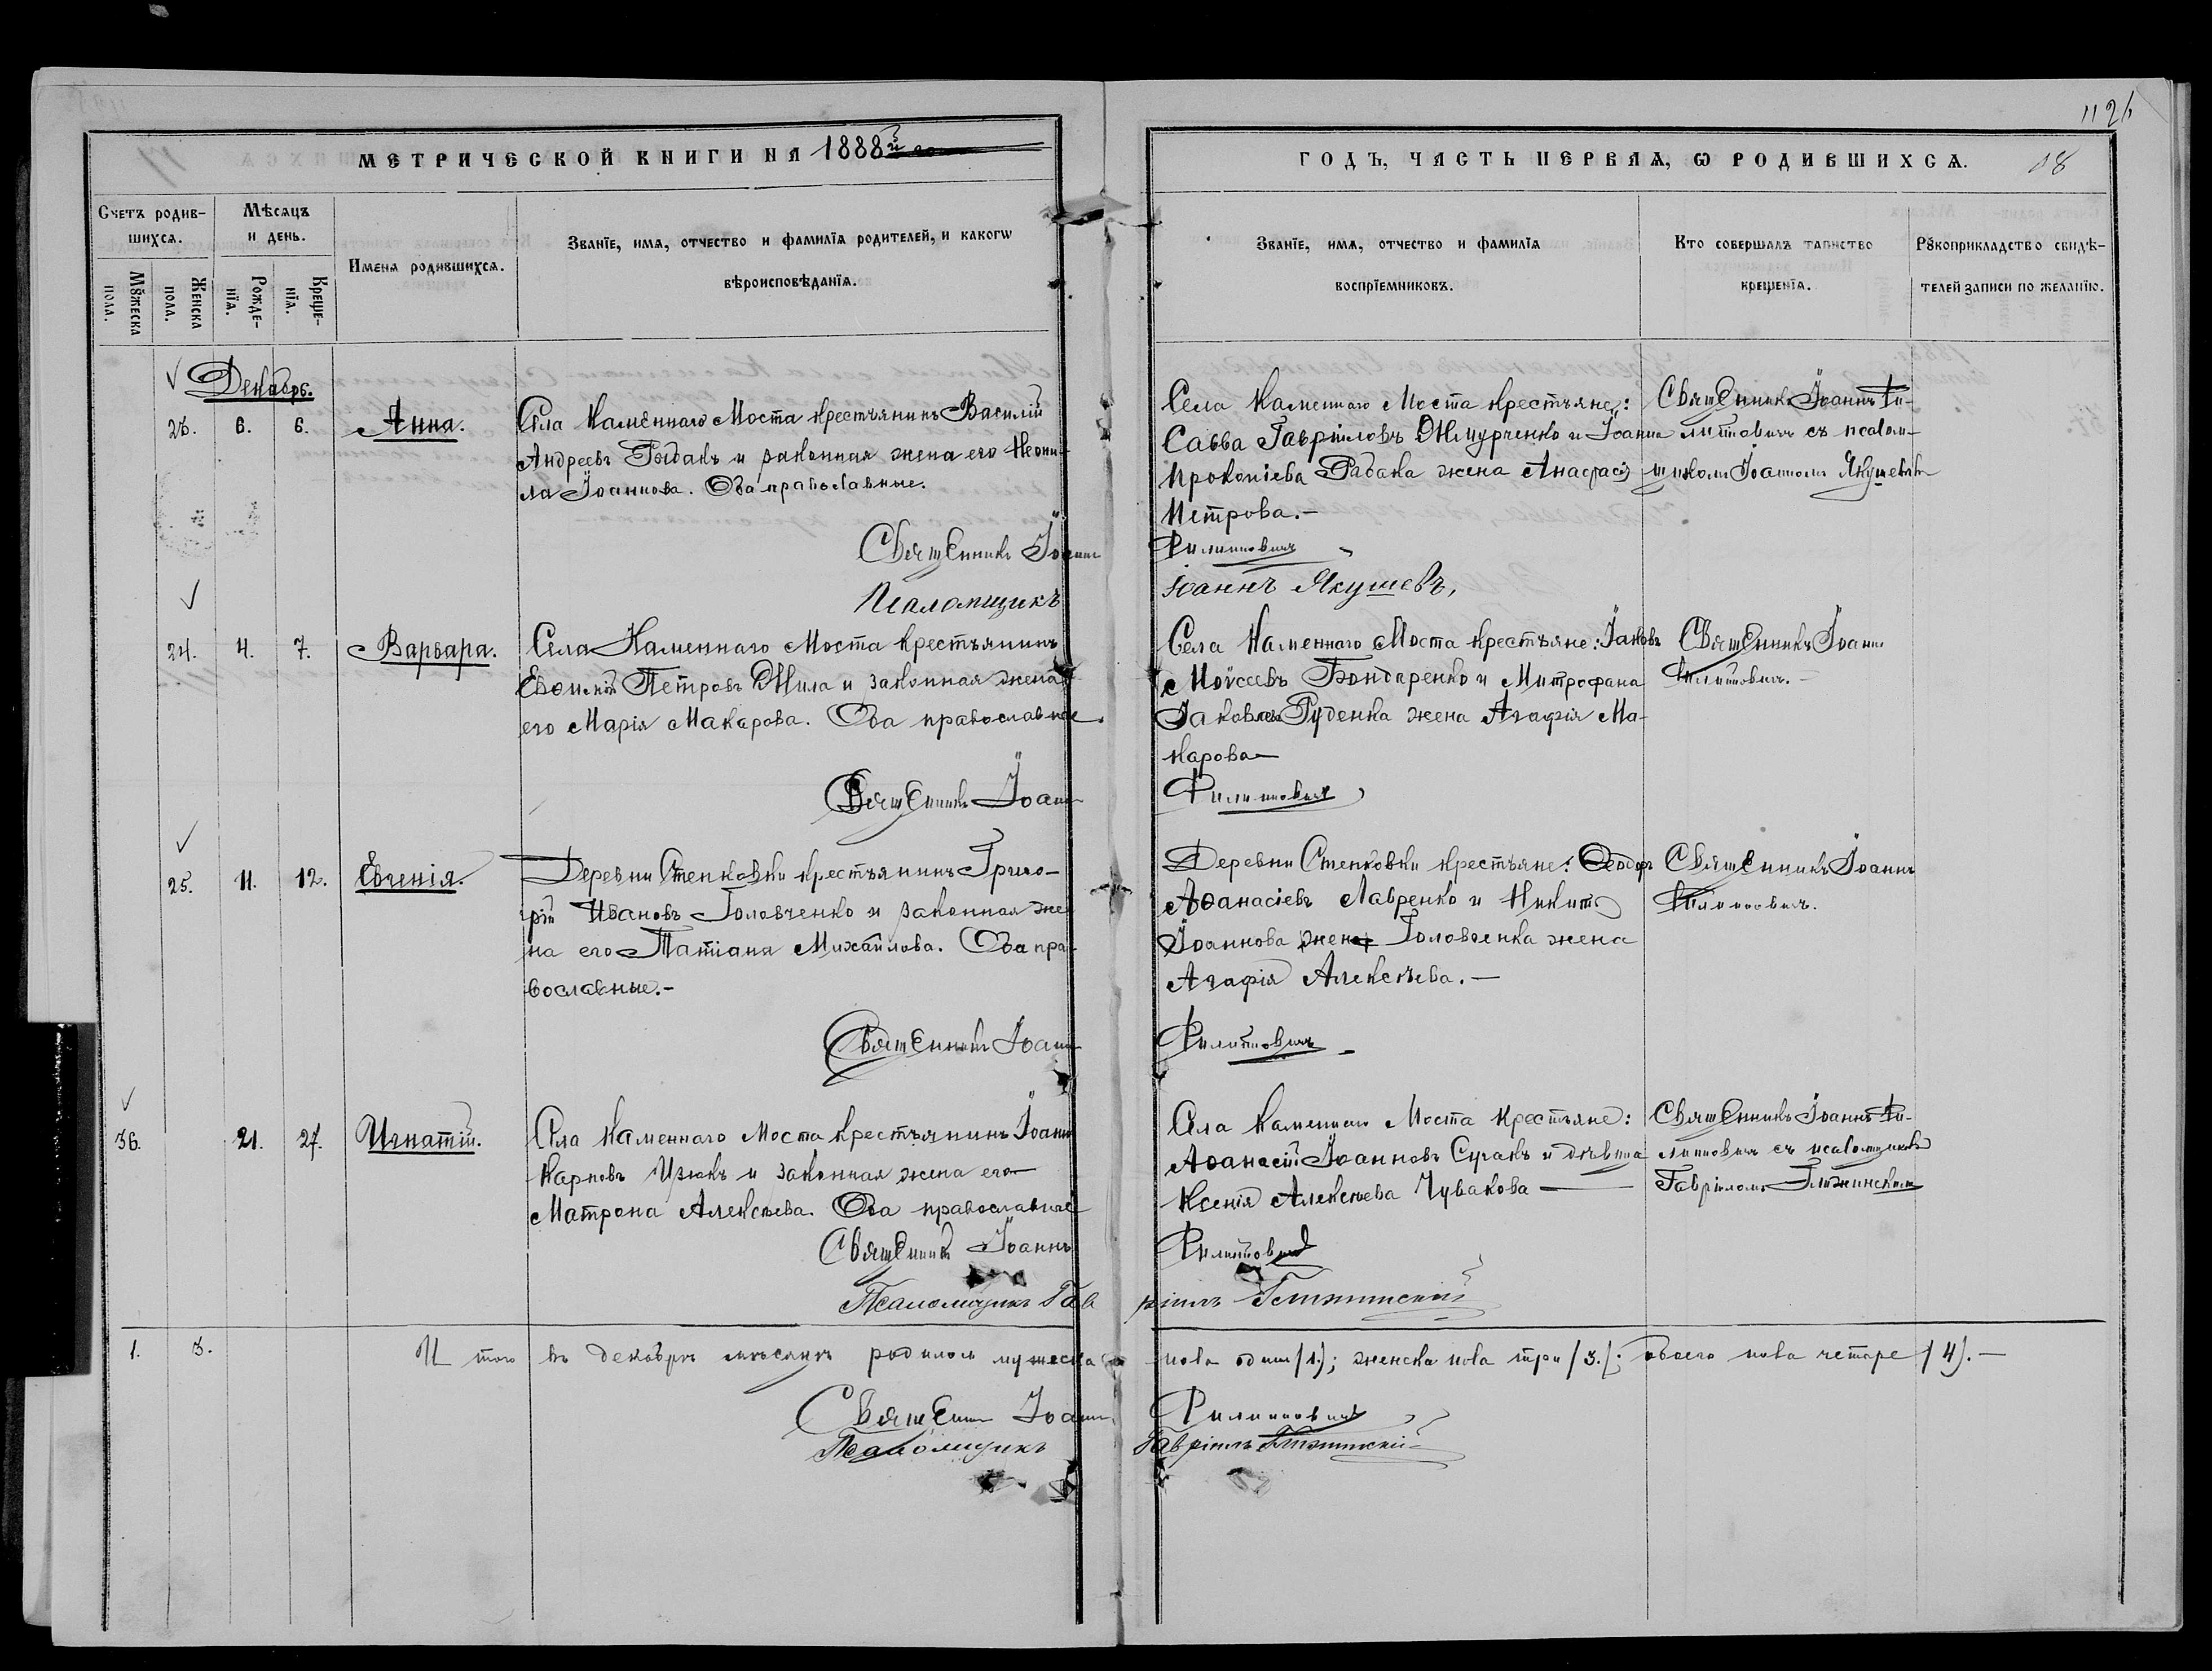 1126
МЕТРИЧЕСКОЙ КНИГИ НА 1888й
ГОДЪ, ЧАСТЬ ПЕРВАЯ, Ѡ РОДИВШИХСѦ.
18
Счетъ родив-
шихсѧ.
Мѹжеска
пола.
Женска
пола.
Мѣсяцъ
и день.
Рожде-
нїѧ.
Креще-
нїѧ.
Имена родившихсѧ.
Званїе, имѧ, отчество и фамилїѧ родителей, и какогѡ
вѣроисповѣданїѧ.
Званїе, имѧ, отчество и фамилїѧ
воспрїемниковъ.
Кто совершалъ таинство
крещенїѧ.
Рѹкоприкладство свидѣ-
телей записи по желанїю.
Декабрь.
23. 6. 6. Анна.
Села Каменнаго Моста крестьянинъ Василій
Андреевъ и законная жена его Неони-
ла Іоаннова. Оба православные.
Священникъ Іоаннъ
Псаломщикъ
Села Каменнаго Моста крестьяне:
Савва Гавріиловъ и Іоанна
Прокопіева жена Анастасія
Петрова.-
Филиповичъ
Іоаннъ Якушевъ,
Священникъ Іоаннъ Фи-
липовичъ съ псалом-
щикомъ Іоанномъ Якушевымъ
24. 4. 7. Варвара.
Села Каменнаго Моста крестьянинъ
Петровъ и законная жена
его Марія Макарова. Оба православные.
Священникъ Іоаннъ
Села Каменнаго Моста крестьяне: Іаковъ
Моѵсеевъ Бондаренко и Митрофана
Іаковлева Руденка жена Агафія Ма-
карова
Филиповичъ
Священникъ Іоаннъ
Филиповичъ.
25. 11. 12. Евгенія.
Деревни Стенковки крестьянинъ Григо-
рій Ивановъ Головченко и законная же-
на его Татіана Михайлова. Оба пра-
вославные.-
Священникъ Іоаннъ
Деревни Стенковки крестьяне: Ѳеодоръ
Аѳанасіевъ Лавренко и Никиты
Іоаннова жена Головченка жена
Агафія Алексѣева.-
Филиповичъ
Священникъ Іоаннъ
Филиповичъ.
36. 21. 27. Игнатій.
Села Каменнаго Моста крестьянинъ Іоаннъ
Карповъ и законная жена его
Матрона Алексѣева. Оба православные
Священникъ Іоаннъ
Псаломщикъ Гав
Села Каменнаго Моста крестьяне:
Аѳанасій Іоанновъ Сугакъ и дѣвица
Ксенія Алексѣева Чувакова
Филиповичъ
ріилъ
Священникъ Іоаннъ Фи-
липовичъ съ псаломщикомъ
Гавріиломъ
1. 3.
И того въ декабрѣ мѣсяцѣ родилось мужеска
пола одинъ (1.); женска пола три (3.); обоего пола четыре (4).-
Священникъ Іоаннъ
Филиповичъ
Псаломщикъ
Гавріилъ